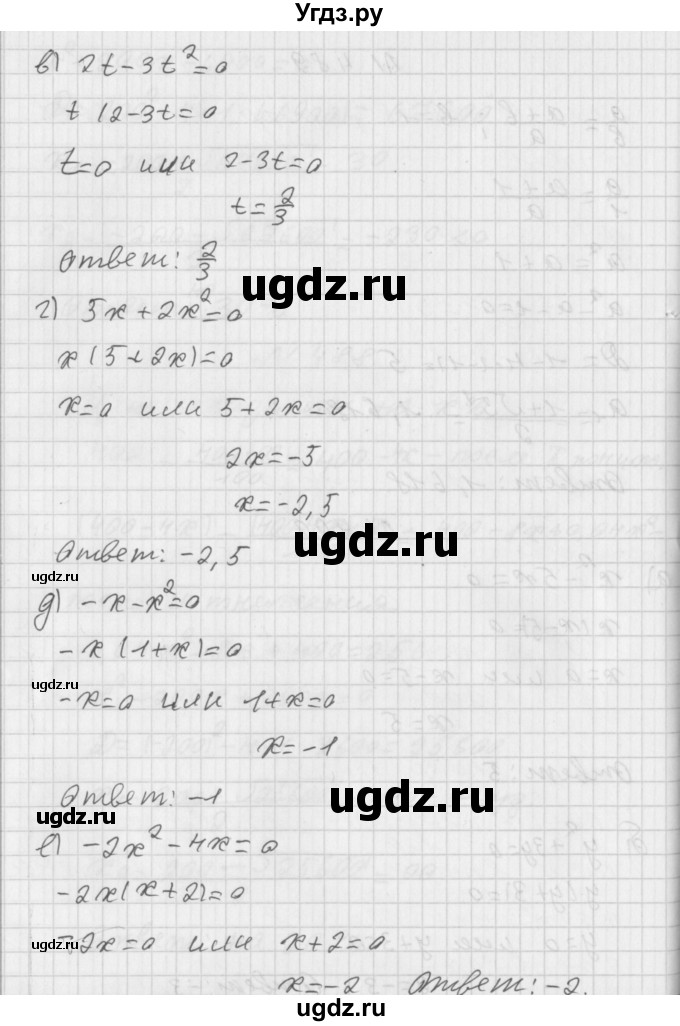 Угдз.ру
в) 2t-3t²=0
t(2-3t=0
t=0 или 2-3t=0
t=2/3
Ответ: 2/3
ugdz.ru
г) 5x+2x²=0
x(5+2x)=0
x=0 или 5+2x=0
2x=-5
x=-2,5
ugdz.ru
Ответ: -2,5
ugdz.ru
д) -x-x²=0
-x(1+x)=0
ugdz.ru
-x=0 или 1+x=0
x=-1
Ответ: -1
ugdz.ru
ugdz.ru
е) -2x²-4x=0
-2x(x+2)=0
-2x=0 или x+2=0
ugdz.ru
x=-2 Ответ: -2.
ugdz.ru